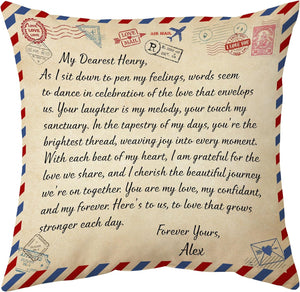 LOVE MAIL
AIR MAIL
R
LOVE YOU
My Dearest Henry,
As I sit down to pen my feelings, words seem
to dance in celebration of the love that envelops
us. Your laughter is my melody, your touch my
sanctuary. In the tapestry of my days, you're the
brightest thread, weaving joy into every moment.
With each beat of my heart, I am grateful for the
love we share, and I cherish the beautiful journey
we're on together. You are my love, my confidant,
and my forever. Here's to us, to love that grows
stronger each day.
Forever Yours,
Alex